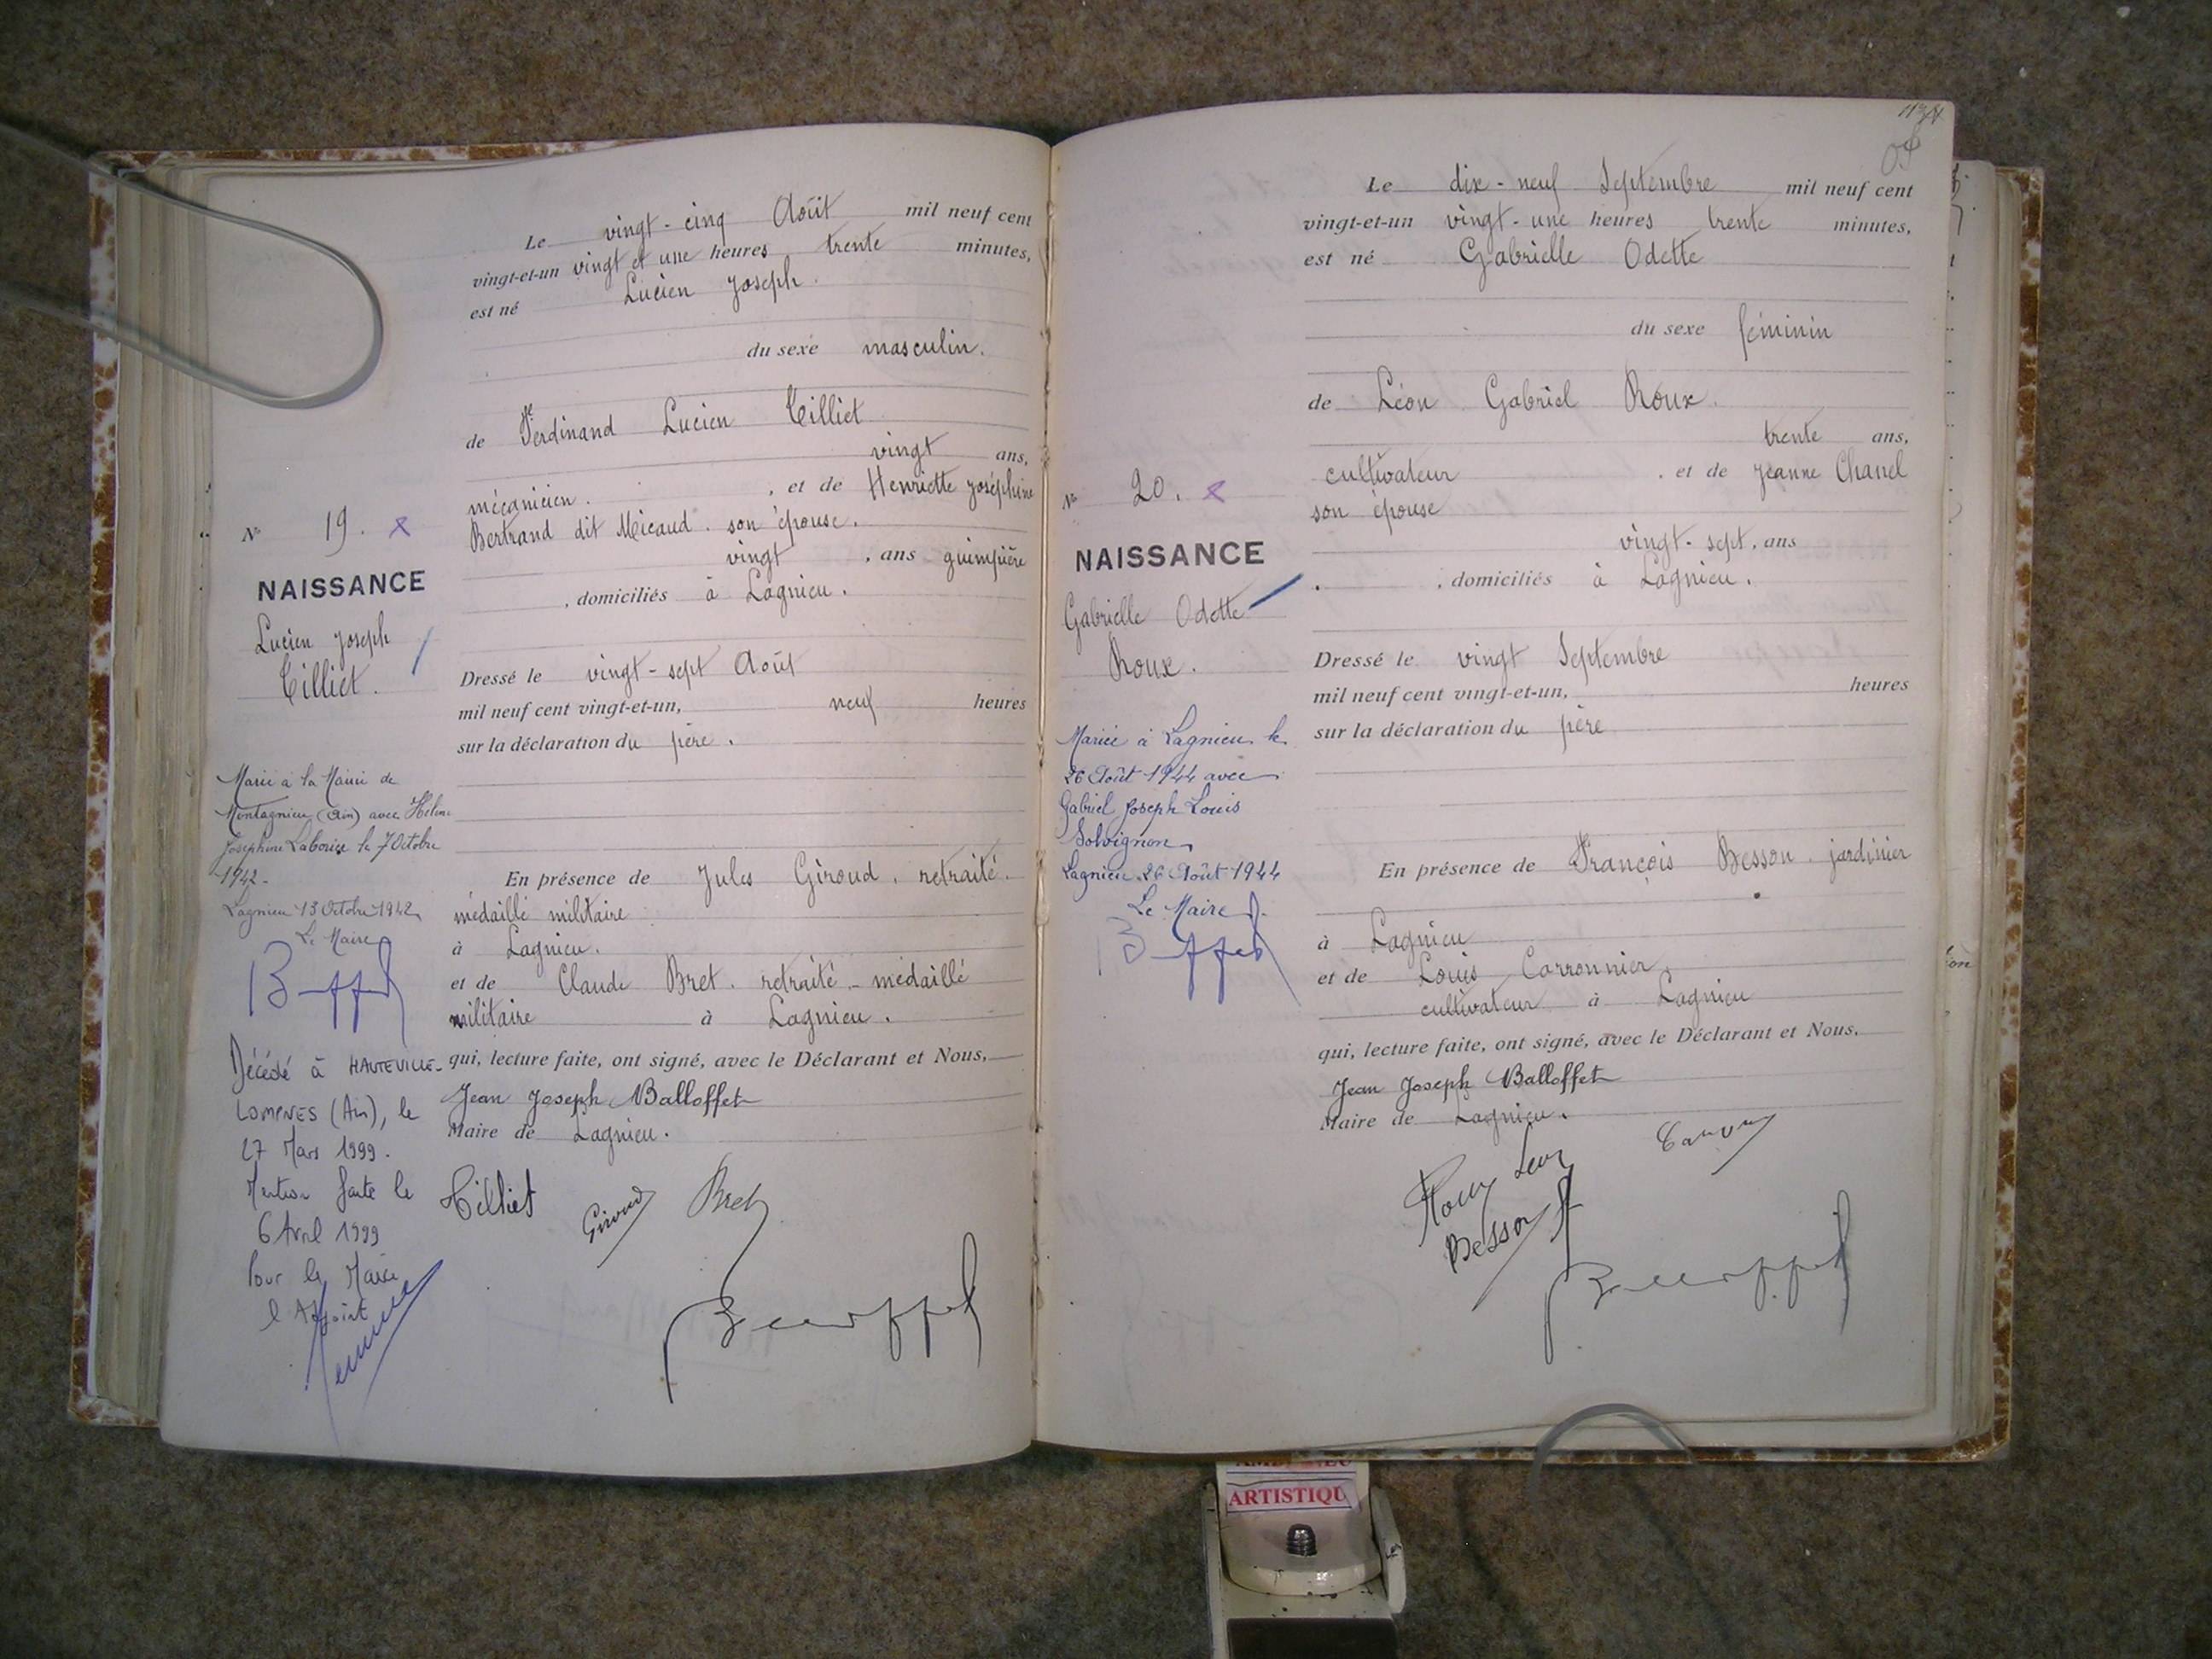 Le vingt-cinq Août mil neuf cent
vingt-et-un vingt et une heures trente minutes,
est né Lucien Joseph.
du sexe masculin.
de Ferdinand Lucien Tilliet
vingt ans,
mécanicien. , et de Henriette Joséphine
Bertrand dit Micaud. son épouse.
vingt , ans guimpière
, domiciliés à Lagnieu.
N° 19.
NAISSANCE
Lucien Joseph
Tilliet.
Dressé le vingt-sept Août
mil neuf cent vingt-et-un, neuf heures
sur la déclaration du père.
Marié à la Mairie de
Montagnieu (Ain) avec Hélène
Joséphine le 7 Octobre
1942.
Lagnieu 13 Octobre 1942
Le Maire
En présence de Jules Giroud, retraité.
médaillé militaire
à Lagnieu.
et de Claude Bret. retraité - médaillé
militaire à Lagnieu.
qui, lecture faite, ont signé, avec le Déclarant et Nous,
Jean Joseph Balloffet
Maire de Lagnieu.
Décédé à HAUTEVILLE-
LOMPNES (Ain), le
27 Mars 1999.
Mention faite le
6 Avril 1999
Pour le Maire
l'Adjoint
Tilliet Giroud Bret
113/4
Le dix-neuf Septembre mil neuf cent
vingt-et-un vingt-une heures trente minutes,
est né Gabrielle Odette
du sexe féminin
de Léon Gabriel Roux.
trente ans,
cultivateur . et de Jeanne Chanel
son épouse
vingt-sept, ans
, domiciliés à Lagnieu.
N° 20.
NAISSANCE
Gabrielle Odette
Roux.
Dressé le vingt Septembre
mil neuf cent vingt-et-un, heures
sur la déclaration du père
Mariée à Lagnieu le
26 Août 1944 avec
Gabriel Joseph Louis
Solvignon
Lagnieu 26 Août 1944
Le Maire
En présence de François Besson. jardinier
à Lagnieu
et de Louis Carronnier
cultivateur à Lagnieu
qui, lecture faite, ont signé, avec le Déclarant et Nous.
Jean Joseph Balloffet
Maire de Lagnieu.
Roux Léon
Besson
ARTISTIQU